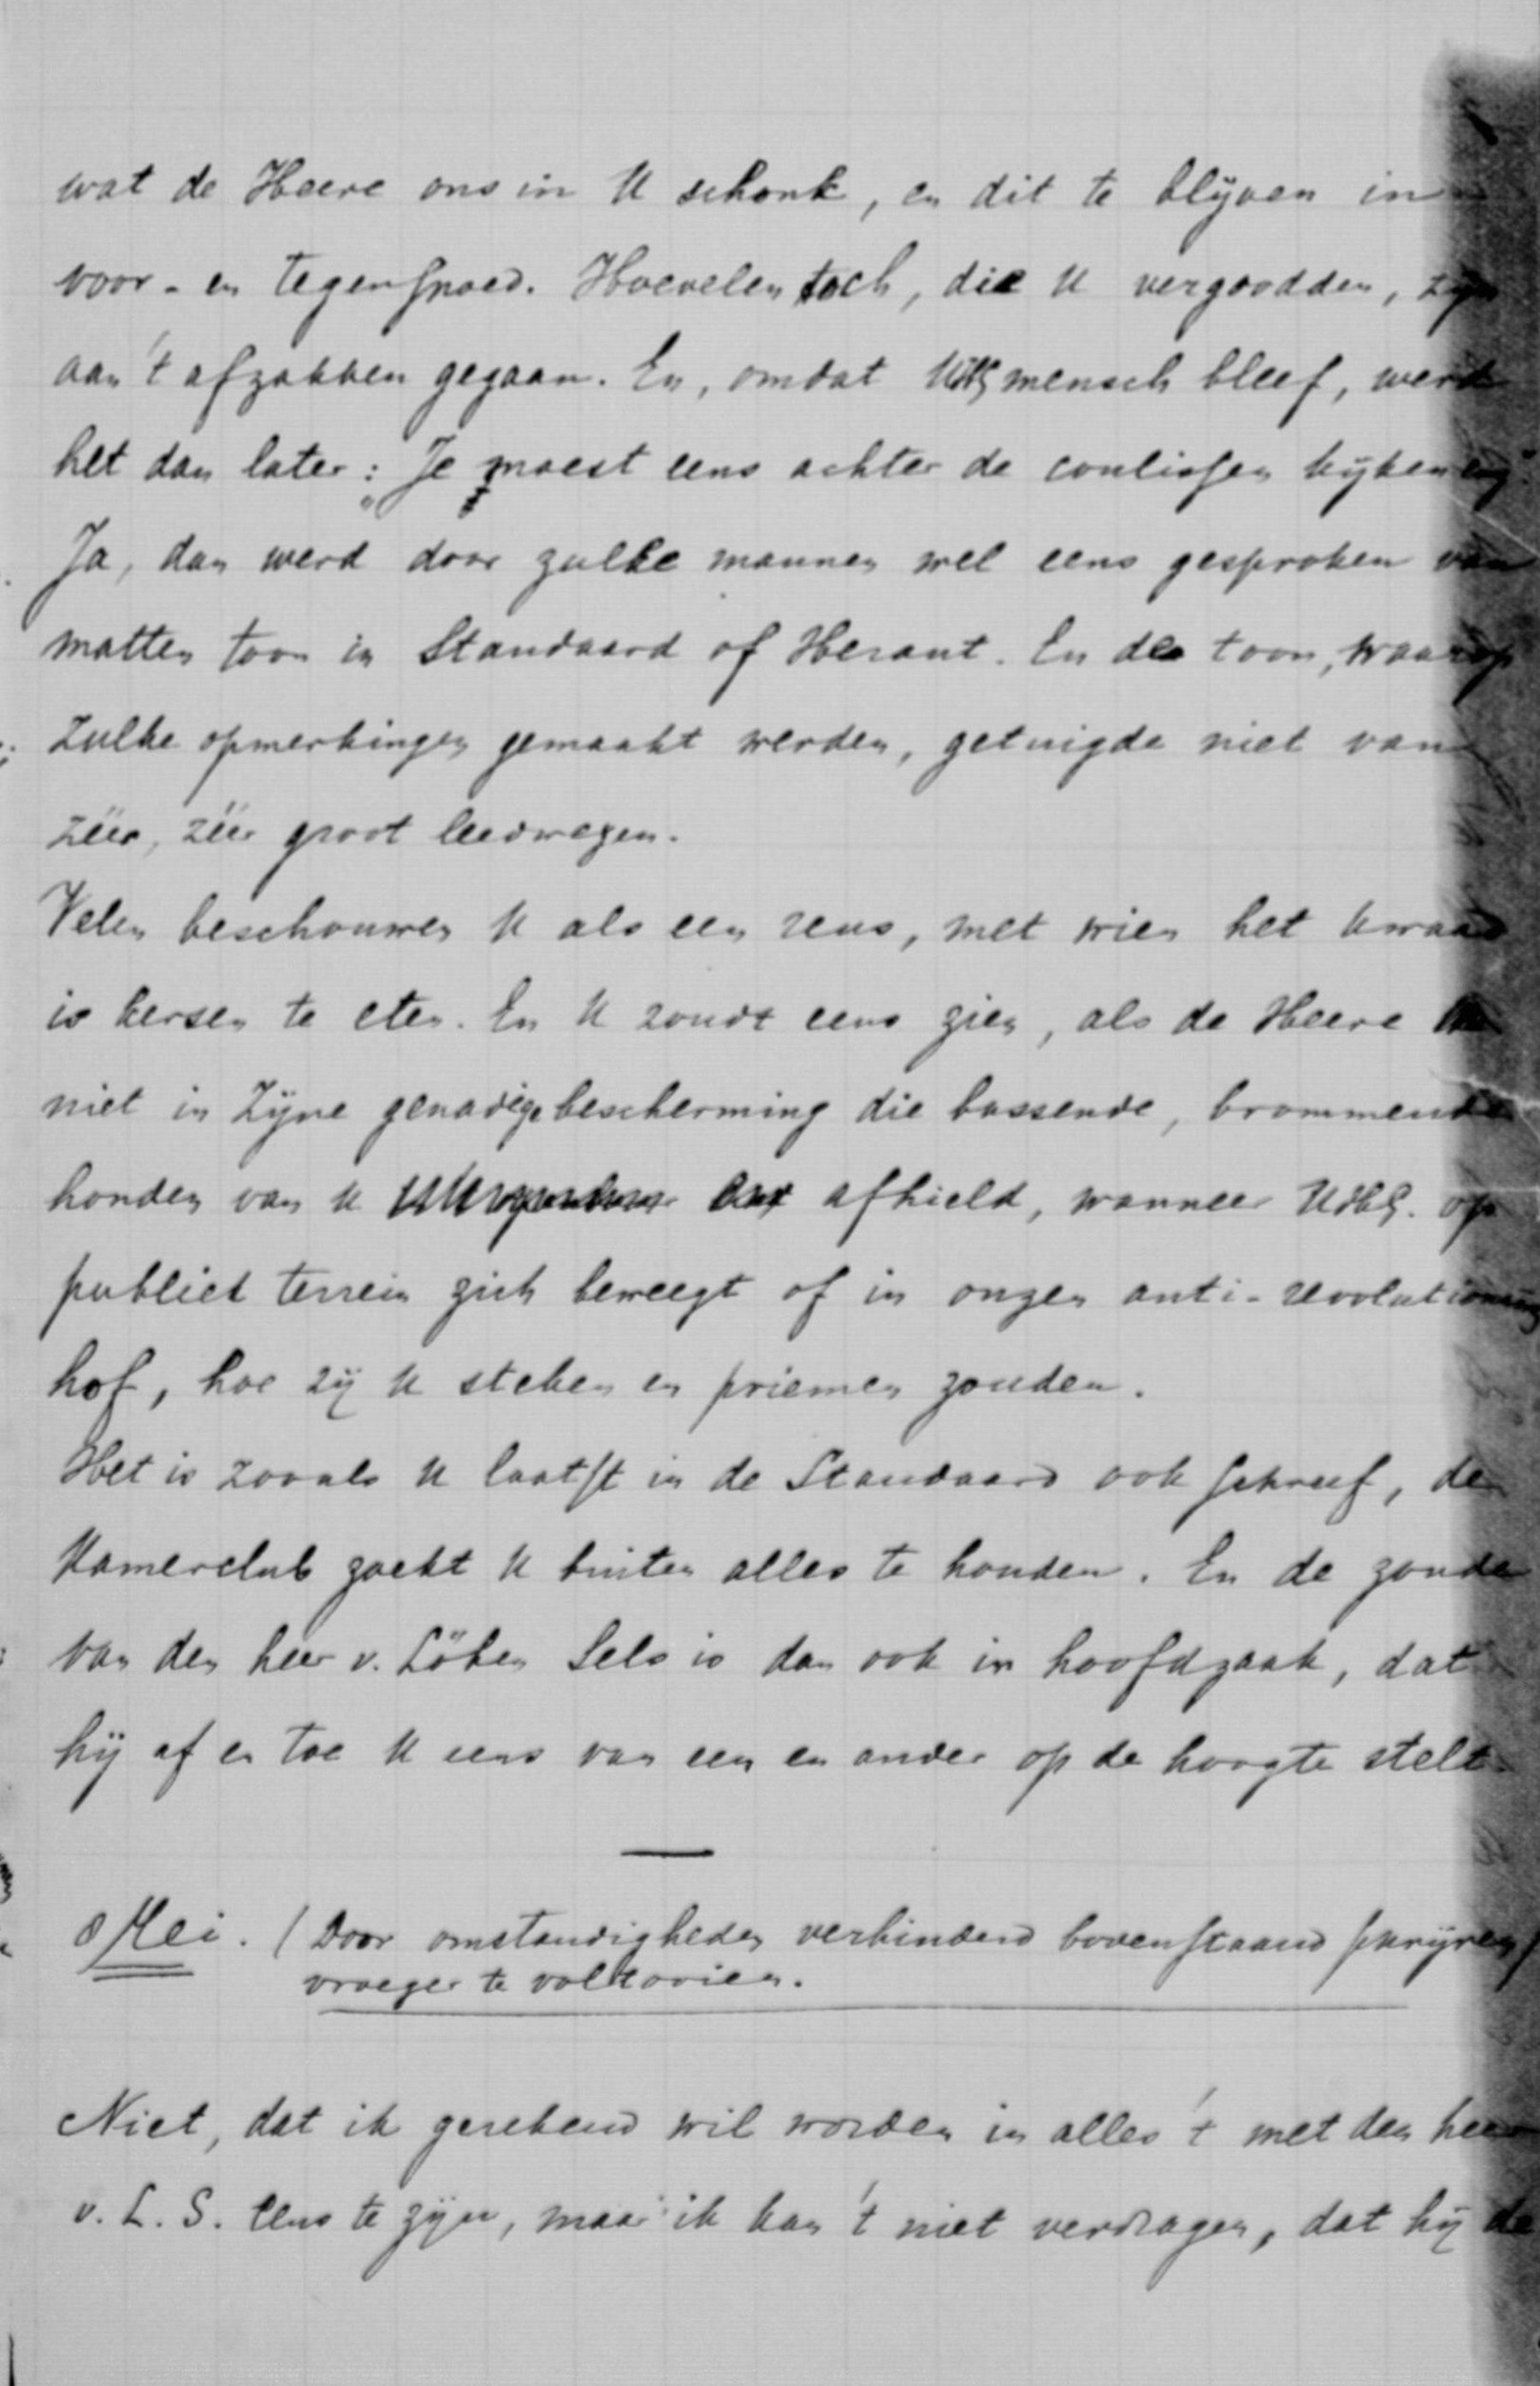 wat de Heere ons in U schonk, en dit te blijven in
voor- en tegenspoed. Hoevelen toch, die U vergoodden, zijn
aan 't afzakken gegaan. En, omdat UHG mensch bleef, werd
het dan later: „Je moest eens achter de coulissen kijken
Ja, dan werd door zulke mannen wel eens gesproken van
matten toon in Standaard of Heraut. En de toon, waarop
zulke opmerkingen gemaakt werden, getuigde niet van
zéér, zéér groot leedwezen.
Velen beschouwen U als een reus, met wien het kwaad
is kersen te eten. En U zoudt eens zien, als de Heere
niet in Zijne genadige bescherming die bassende, brommende
honden van U afhield, wanneer UHEG. op
publiek terrein zich beweegt of in onzen anti-revolutionairen
hof, hoe zij U steken en priemen zouden.
Het is zooals U laatst in de Standaard ook schreef, de
Kamerclub zoekt U buiten alles te houden. En de zonde
van den heer v. Löben Sels is dan ook in hoofdzaak, dat
hij af en toe U eens van een en ander op de hoogte stelt.
8 Mei. (Door omstandigheden verhinderd bovenstaand schrijven
vroeger te voltooien.
Niet, dat ik gerekend wil worden in alles 't met den heer
v. L. S. eens te zijn, maar ik kan 't niet verdragen, dat hij de